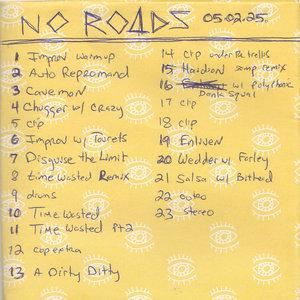 NO ROADS 05.02.25
1 Improv warmup
2 Auto Repromand
3 Caveman
4 Chugger w/ Crazy
5 clip
6 Improv w/ Tourets
7 Disguise the Limit
8 time wasted Remix
9 drums
10 Time Wasted
11 Time Wasted pt2
12 cop extra
13 A Dirty Ditty
14 clip under
15 Haidion samp remix
16 w/ polyphonic
Dank Squal
17 clip
18 clip
19 Enliven
20 Wedder w/ Farley
21 Salsa w/
22 outro
23 Stereo